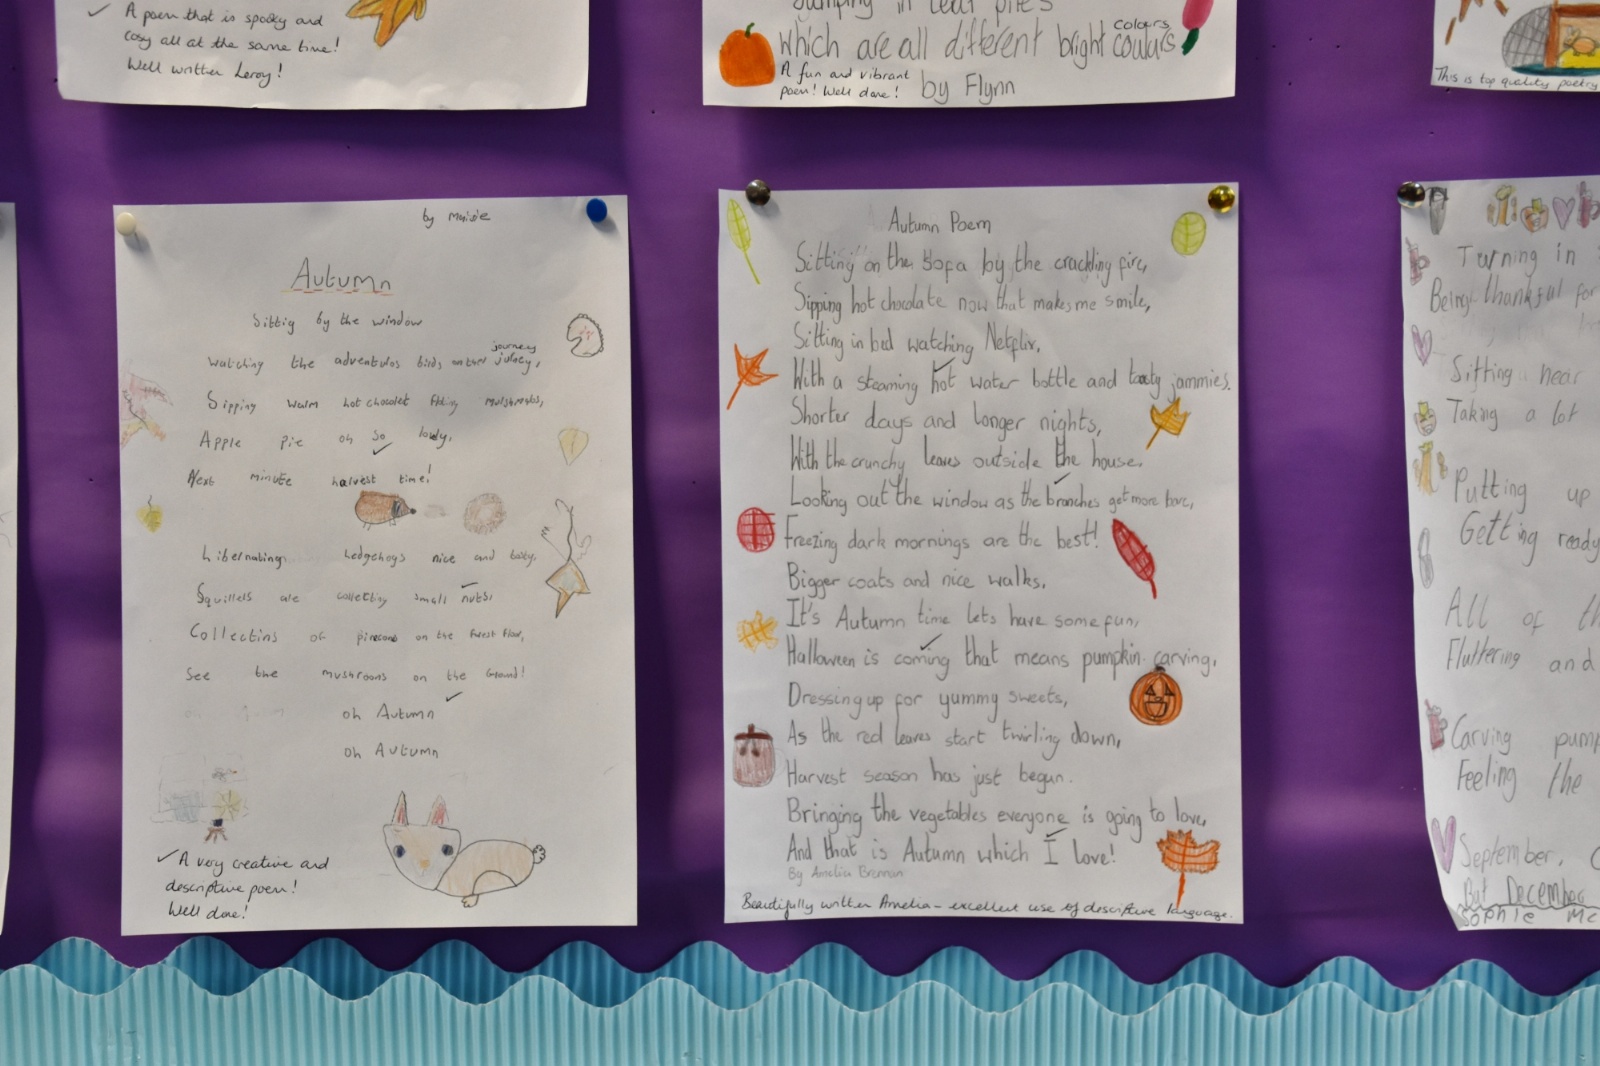 ✓ A poem that is spooky and
cosy all at the same time!
Well written Leroy!
Jumping in leaf piles
which are all different bright coulars
colours
A fun and vibrant
poem! Well done!
by Flynn
This is top quality poetry
by Maisie
Autumn
Sittig by the window
watching the adventulos birds on ther julney,
journey
Sipping warm hot chocolet mushrooms,
Apple pie oh so lovly,
Next minute harvest time!
hibernating hedgehogs nice and
Squillels are collecting small nuts,
Collectins of pinecons on the forest floor,
See the mushrooms on the Ground!
oh Autumn
oh Autumn
✓ A very creative and
descriptive poem!
Well done!
Autumn Poem
Sitting on the sofa by the crackling fire,
Sipping hot chocolate now that makes me smile,
Sitting in bed watching Netflix,
With a steaming hot water bottle and toasty jammies.
Shorter days and longer nights,
With the crunchy leaves outside the house.
Looking out the window as the branches get more bare,
Freezing dark mornings are the best!
Bigger coats and nice walks.
It's Autumn time lets have some fun,
Halloween is coming that means pumpkin carving,
Dressing up for yummy sweets,
As the red leaves start twirling down,
Harvest season has just begun.
Bringing the vegetables everyone is going to love,
And that is Autumn which I love!
By Amelia Brennan
Beautifully written Amelia - excellent use of descriptive language.
Turning in
Being thankful for
Sitting near
Taking a lot
Putting up
Getting ready
All of th
Fluttering and
Carving pump
Feeling the
September, O
But December
Sophie Mc